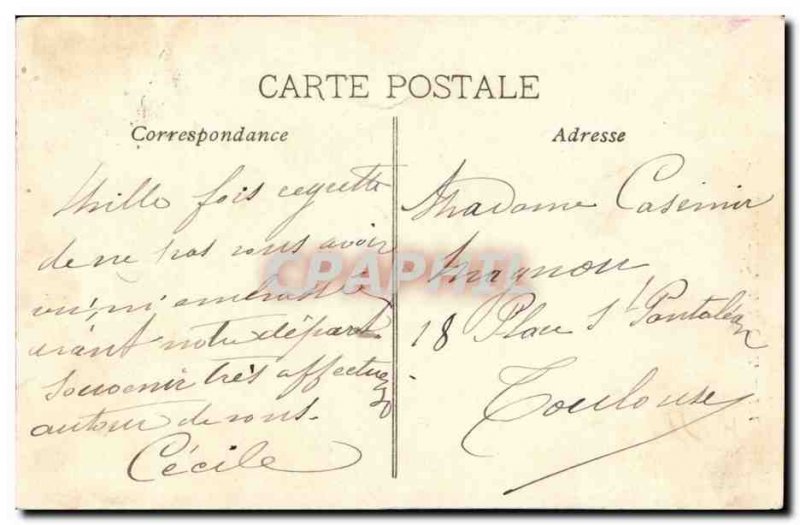 CARTE POSTALE
Correspondance
Mille fois regrette
de ne pas vous avoir
vu, ni embrassé
avant notre départ
Souvenir très affectueux
autour de vous.
Cécile
Adresse
Madame Casimir
Magnou
18 Place St Pantaléon
Toulouse
CPAPHIL